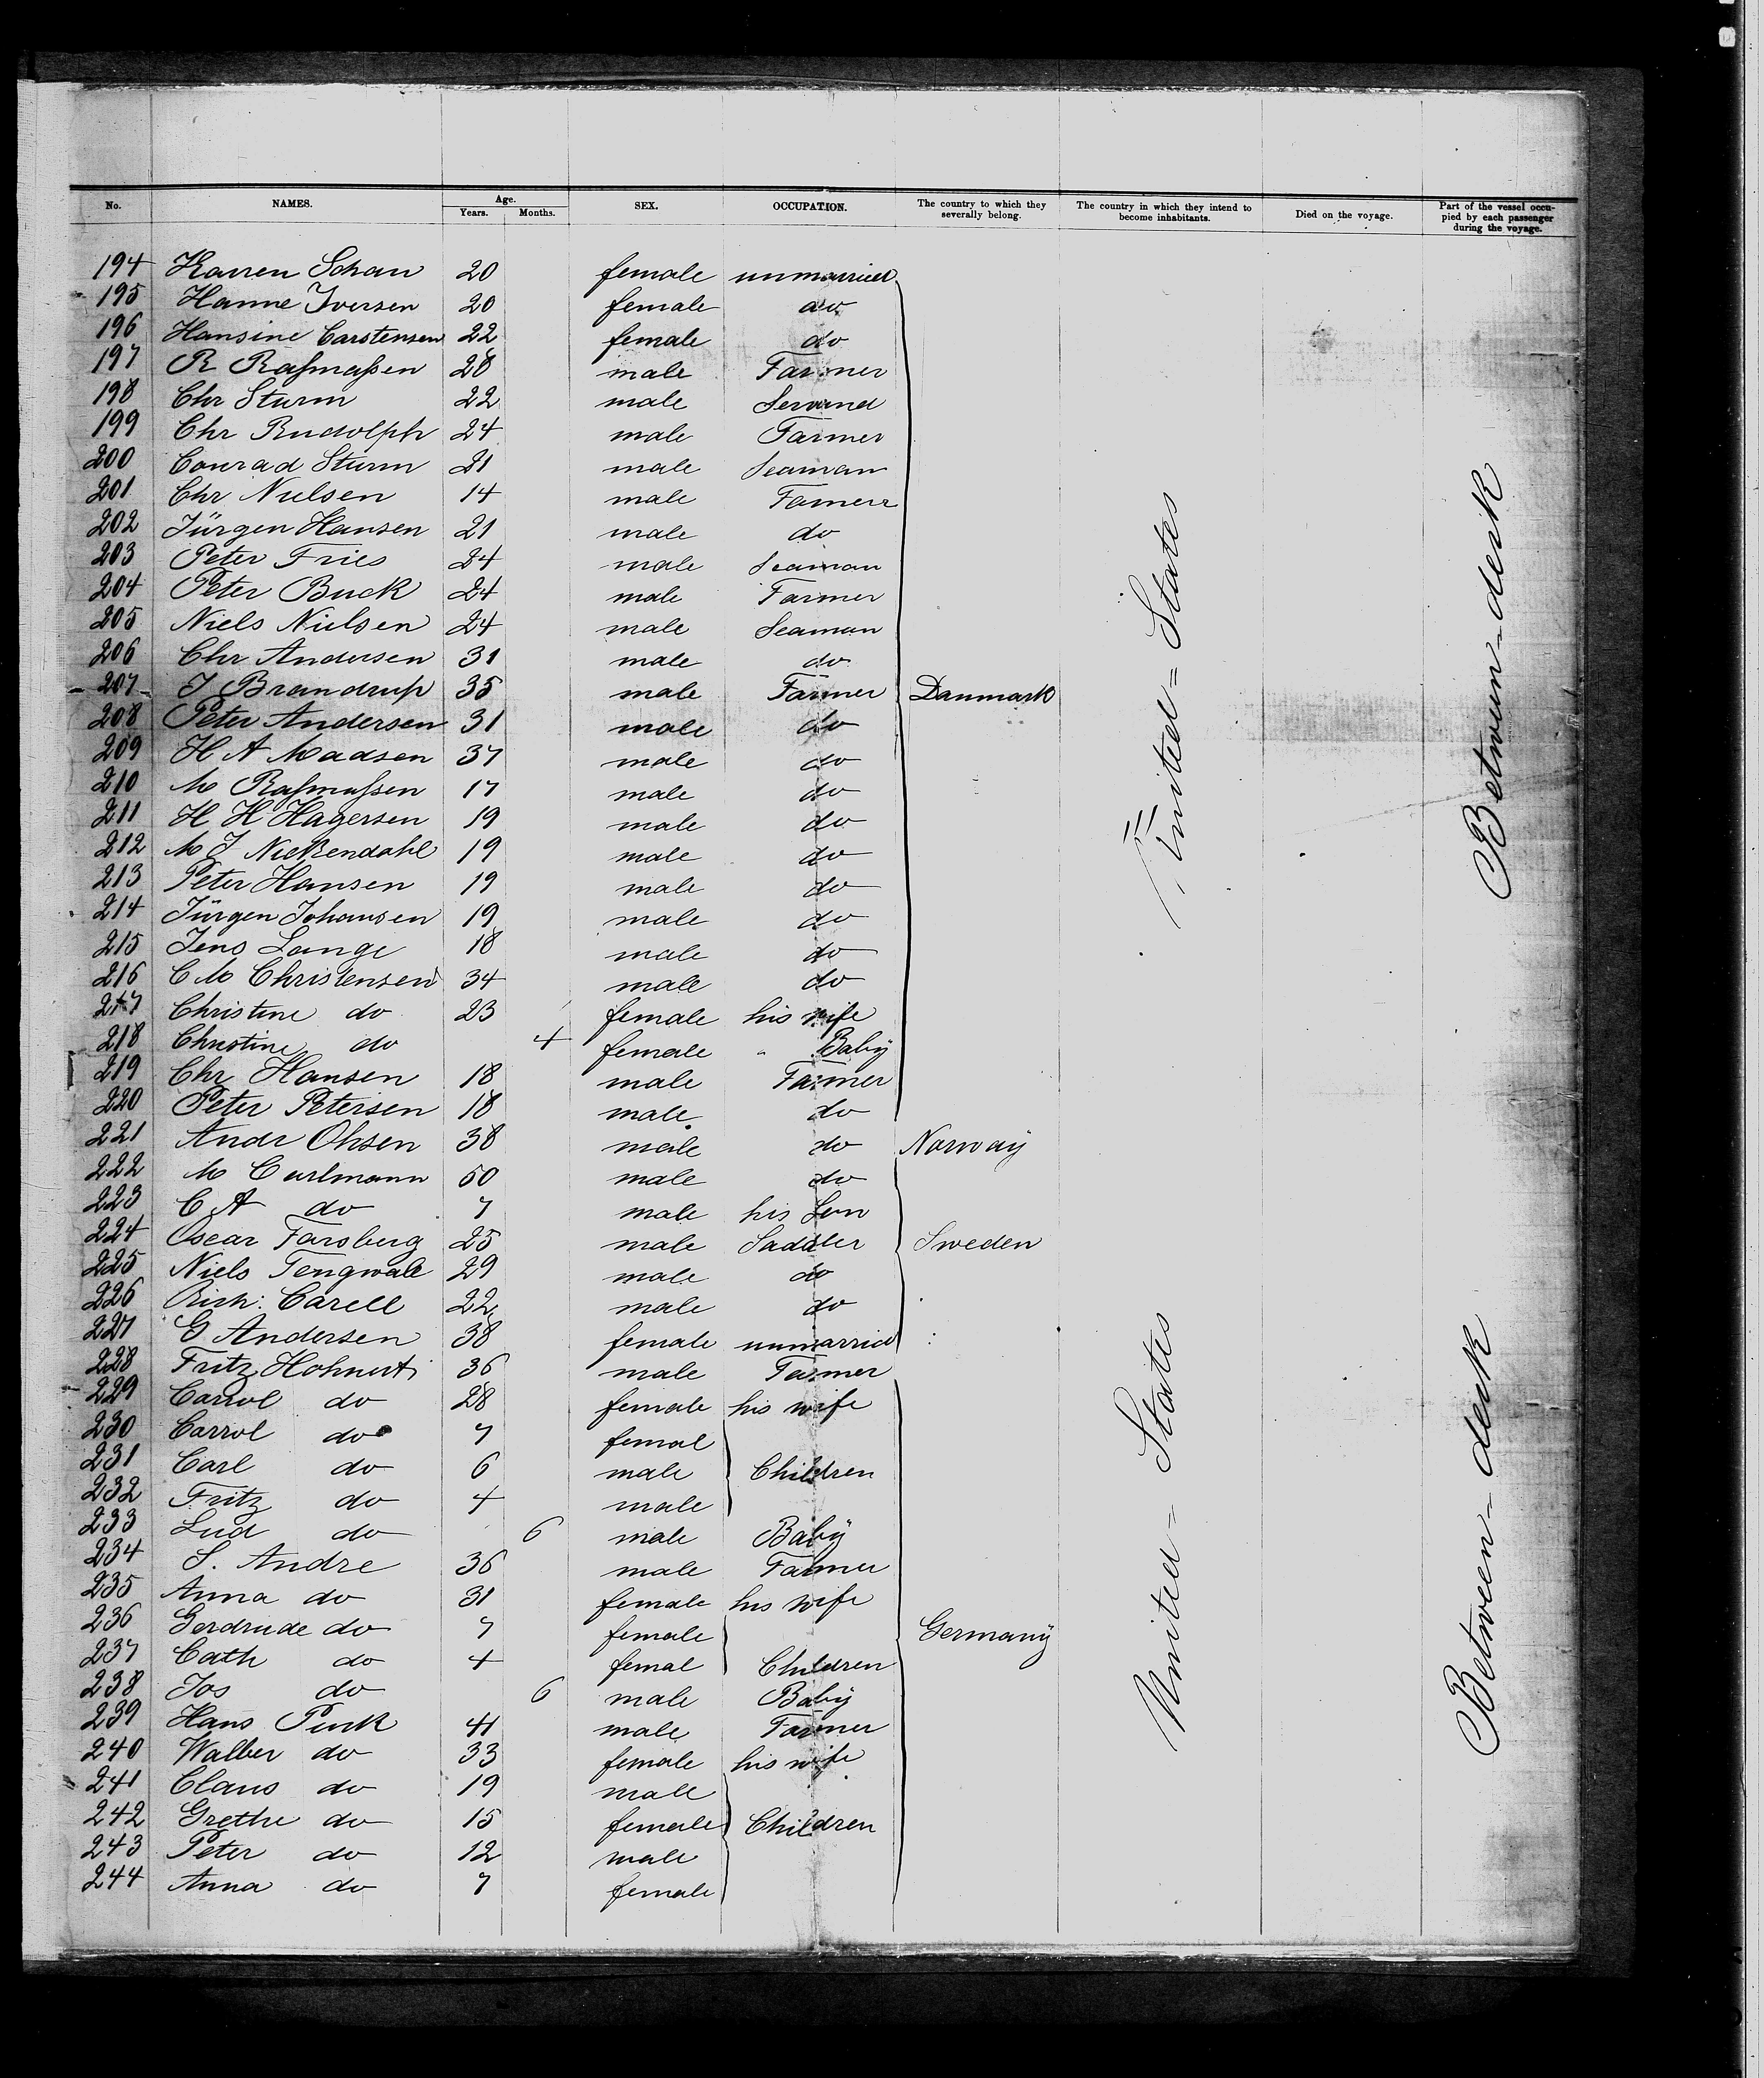 No. NAMES. Age. Years. Months. SEX. OCCUPATION. The country to which they severally belong. The country in which they intend to become inhabitants. Died on the voyage. Part of the vessel occupied by each passenger during the voyage.
194 Karren Schau 20 female unmarried
195 Hanne Iversen 20 female do
196 Hansine Carstensen 22 female do
197 R Raſmaſsen 28 male Farmer
198 Chr Sturm 22 male Servand
199 Chr Rudolph 24 male Farmer
200 Conrad Sturm 21 male Seaman
201 Chr Nielsen 14 male Famerr
202 Jürgen Hansen 21 male do
203 Peter Fries 24 male Seaman
204 Peter Buck 24 male Farmer
205 Niels Nielsen 24 male Seaman
206 Chr Andersen 31 male do
207 J Brandrup 35 male Farmer Danmark
208 Peter Andersen 31 male do
209 H A Madsen 37 male do
210 M Raſmuſsen 17 male do
211 H H Hagersen 19 male do
212 M J Niekendahl 19 male do
213 Peter Hansen 19 male do
214 Jürgen Johansen 19 male do
215 Jens Lange 18 male do
216 C M Christensen 34 male do
217 Christine do 23 female his wife
218 Christine do 4 female Baby
219 Chr Hansen 18 male Farmer
220 Peter Petersen 18 male do
221 Andr Ohsen 38 male do Norway
222 M Carlmann 50 male do
223 C A do 7 male his Son
224 Oscar Farsberg 25 male Saddler Sweden
225 Niels Tengwall 29 male do
226 Rich: Carell 22 male do
227 G Andersen 38 female unmarried
228 Fritz Hohnert 36 male Farmer
229 Carrol do 28 female his wife
230 Carrol do 7 femal
231 Carl do 6 male Children
232 Fritz do 4 male
233 Lud do 6 male Baby
234 S. Andre 36 male Farmer
235 Anna do 31 female his wife
236 Gerdrude do 7 female Germany
237 Cath do 4 femal Children
238 Jos do 6 male Baby
239 Hans Puck 41 male Farmer
240 Walber do 33 female his wife
241 Claus do 19 male
242 Grethe do 15 female Children
243 Peter do 12 male
244 Anna do 7 female
United = States
United - States
Between - derk
Between - derk